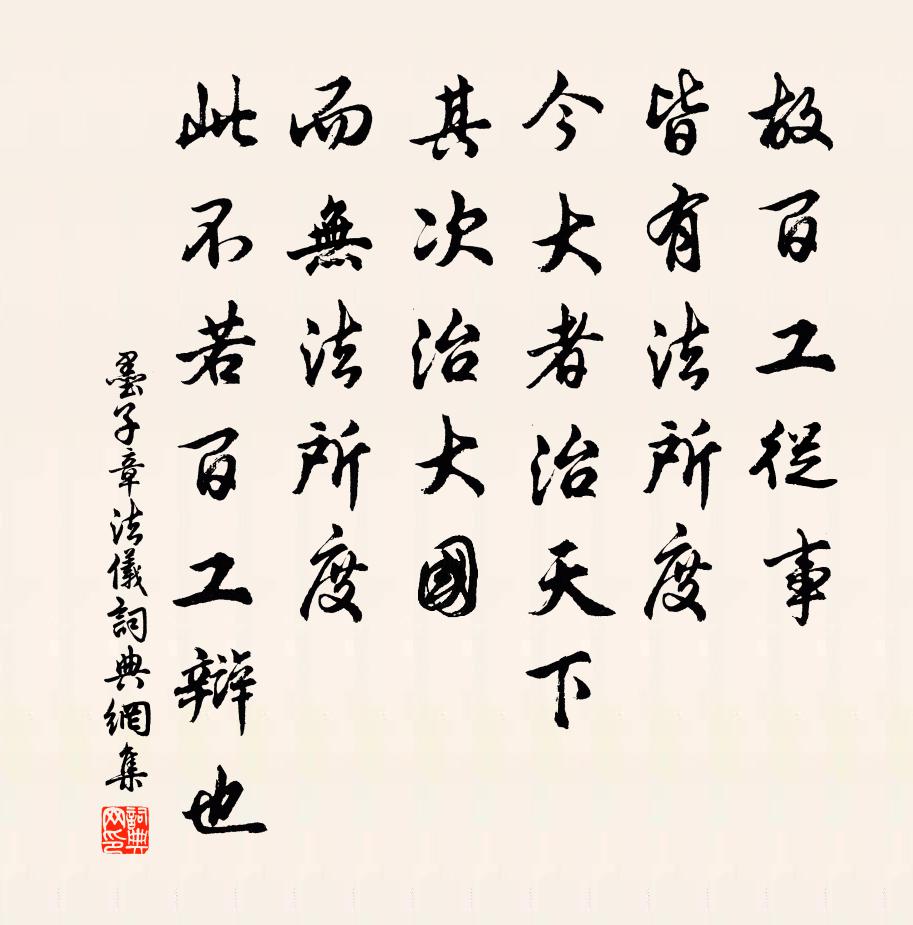 故百工從事
皆有法所度
今大者治天下
其次治大國
而無法所度
此不若百工辯也
墨子章法儀詞典網集
詞典網印